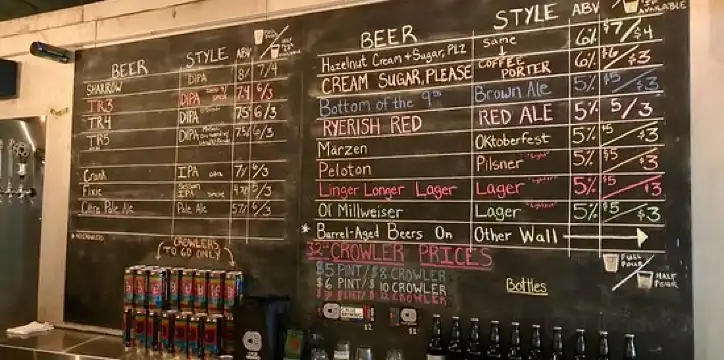 BEER STYLE ABV
SHARROW DIPA 8% 7/4
TR3 DIPA 7.4 6/3
TR4 DIPA 7.5% 6/3
TR5 DIPA 7.5% 6/3
Crank IPA 7% 6/3
Fixie Session IPA 5/3
Citra Pale Ale Pale Ale 5.7% 6/3
CROWLERS
TO GO ONLY
BEER STYLE ABV AVAILABLE
Hazelnut Cream + Sugar, PLZ same 6% $7/$4
CREAM SUGAR, PLEASE COFFEE PORTER 6% $6/$3
Bottom of the 9th Brown Ale 5% $5/$3
RYERISH RED RED ALE 5% 5/3
Märzen Oktoberfest 5% $5/$3
Peloton Pilsner "Light" 5% $5/$3
Linger Longer Lager Lager 5% $5/$3
Ol' Millweiser Lager 5% $5/$3
* Barrel-Aged Beers On Other Wall
32oz CROWLER PRICES
$5 PINT/$8 CROWLER
$6 PINT/$10 CROWLER
CROWLER
FULL POUR
HALF POUR
Bottles